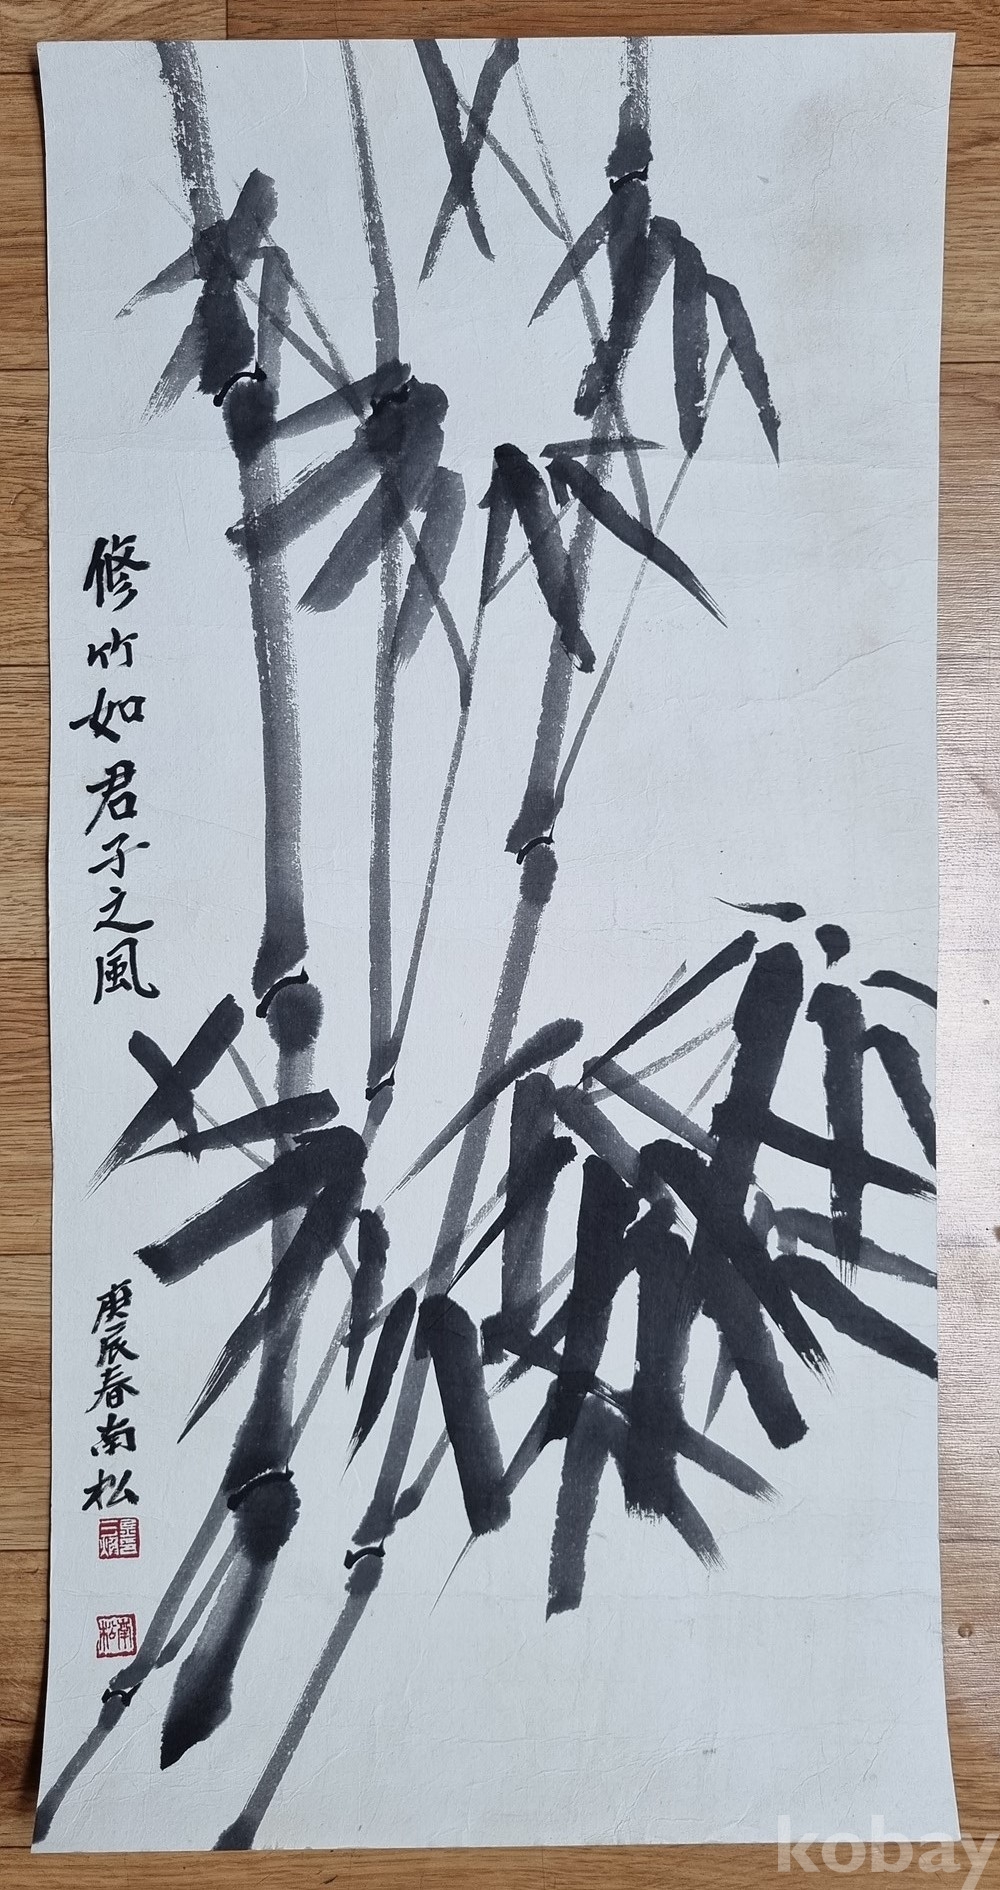 修竹如君子之風
庚辰春南松
南松
kobay